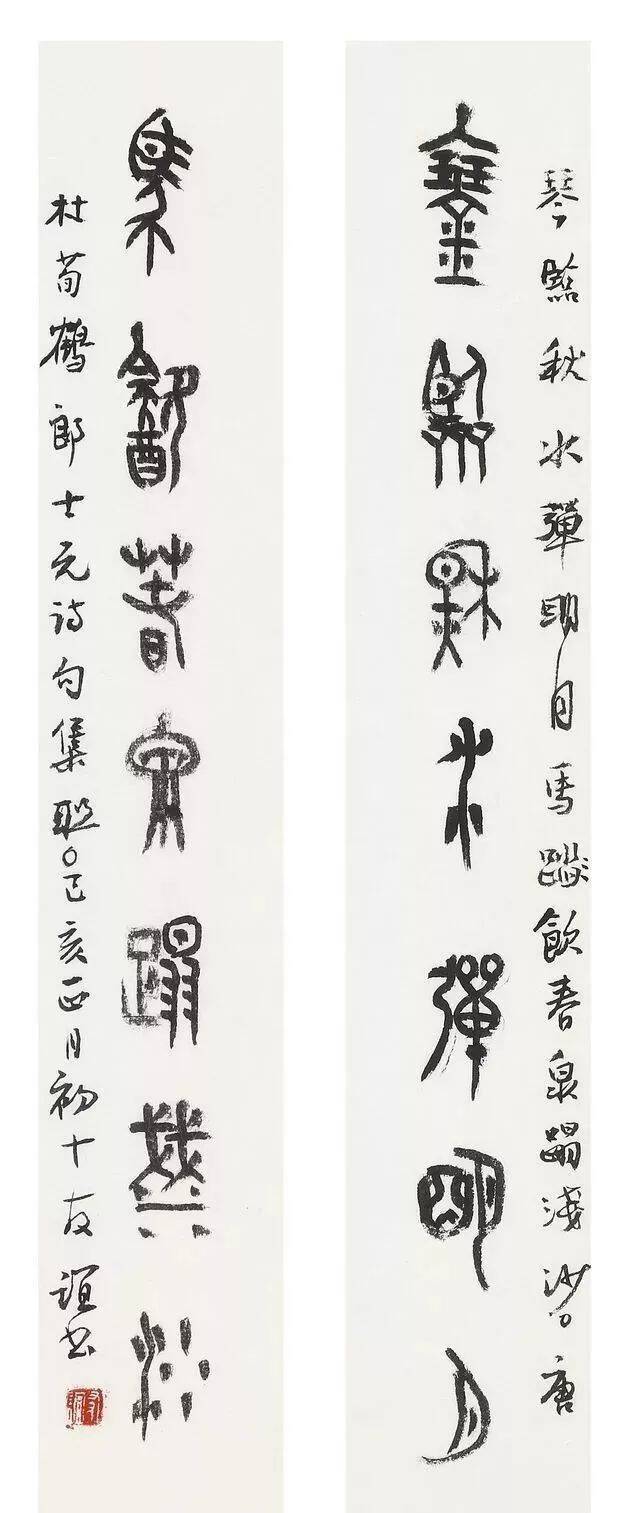 琴臨秋水彈明月馬飲春泉蹋淺沙。唐
琴臨秋水彈明月
馬飲春泉蹋淺沙
杜荀鶴郎士元诗句集联。己亥正月初十友谊书